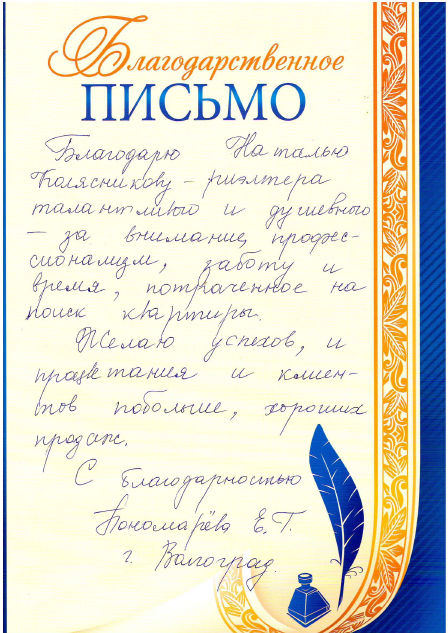 Благодарственное
ПИСЬМО
Благодарю Наталью
Колясникову – риэлтера
талантливого и душевного
– за внимание, профес-
сионализм, заботу и
время, потраченное на
поиск квартиры.
Желаю успехов, и
процветания и клиен-
тов побольше, хороших
продаж.
С благодарностью
Пономарёва Е.Г.
г. Волгоград.